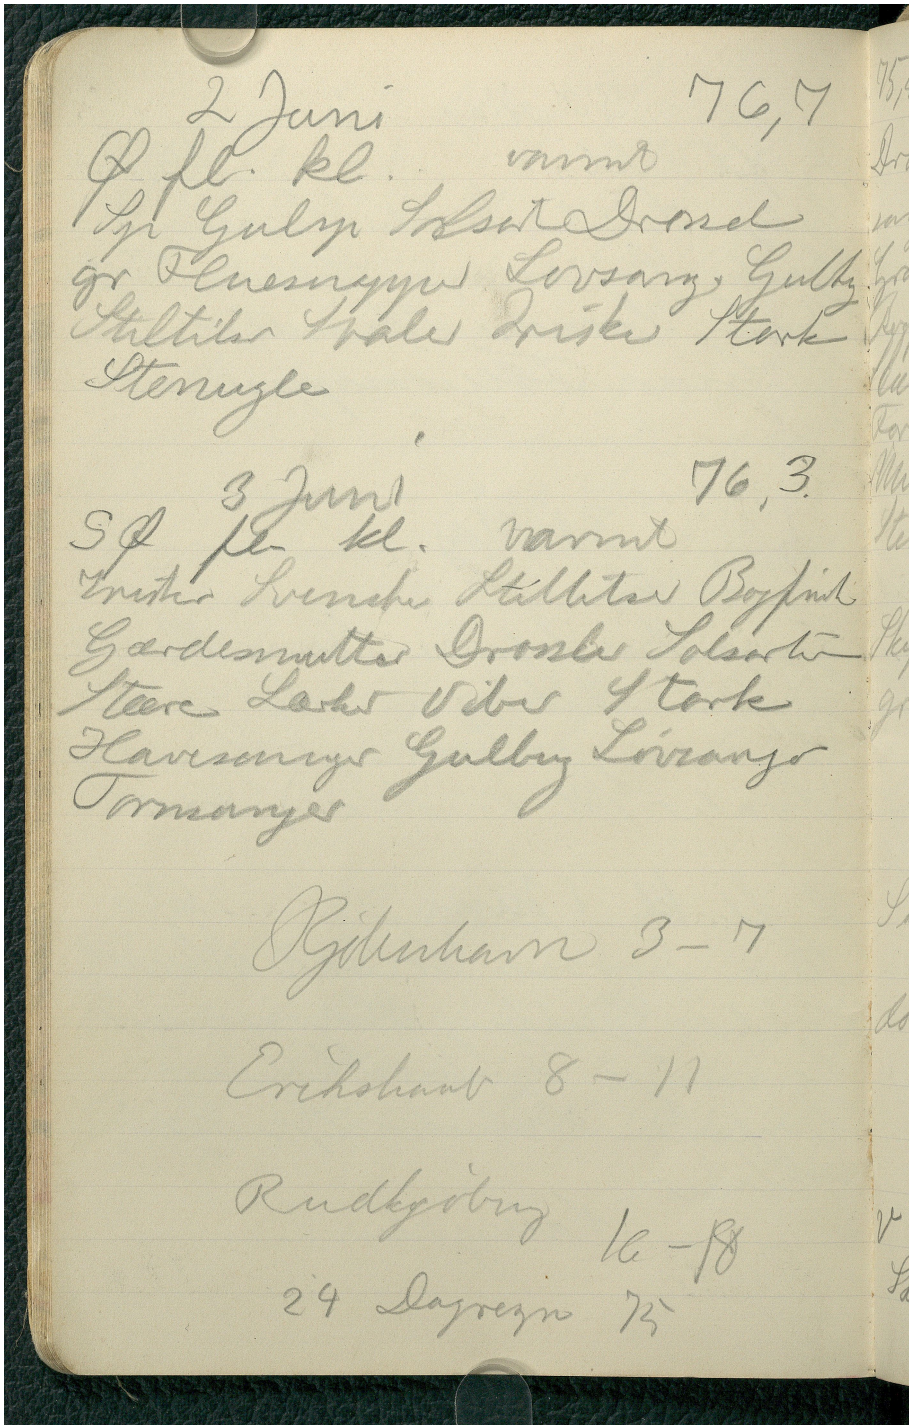 2 Juni 76,7
Ø fl. kl. varmt
Sp Gulsp Solsort Drossel
gr Fluesnapper Løvsang. Gulbg
Stillitser Svaler Irisker Stork
Stenugle
3 Juni 76,3.
SØ fl kl. varmt
Irisker Svenske Stillitser Bogfink
Gærdesmutter Drossler Solsorter
Stære Lærker Viber Stork
Havesanger Gulbug Løvsanger
Tornsanger
Kjøbenhavn 3-7
Erikshaab 8-11
Rudkjøbing
16-18
24 Dagregn 75